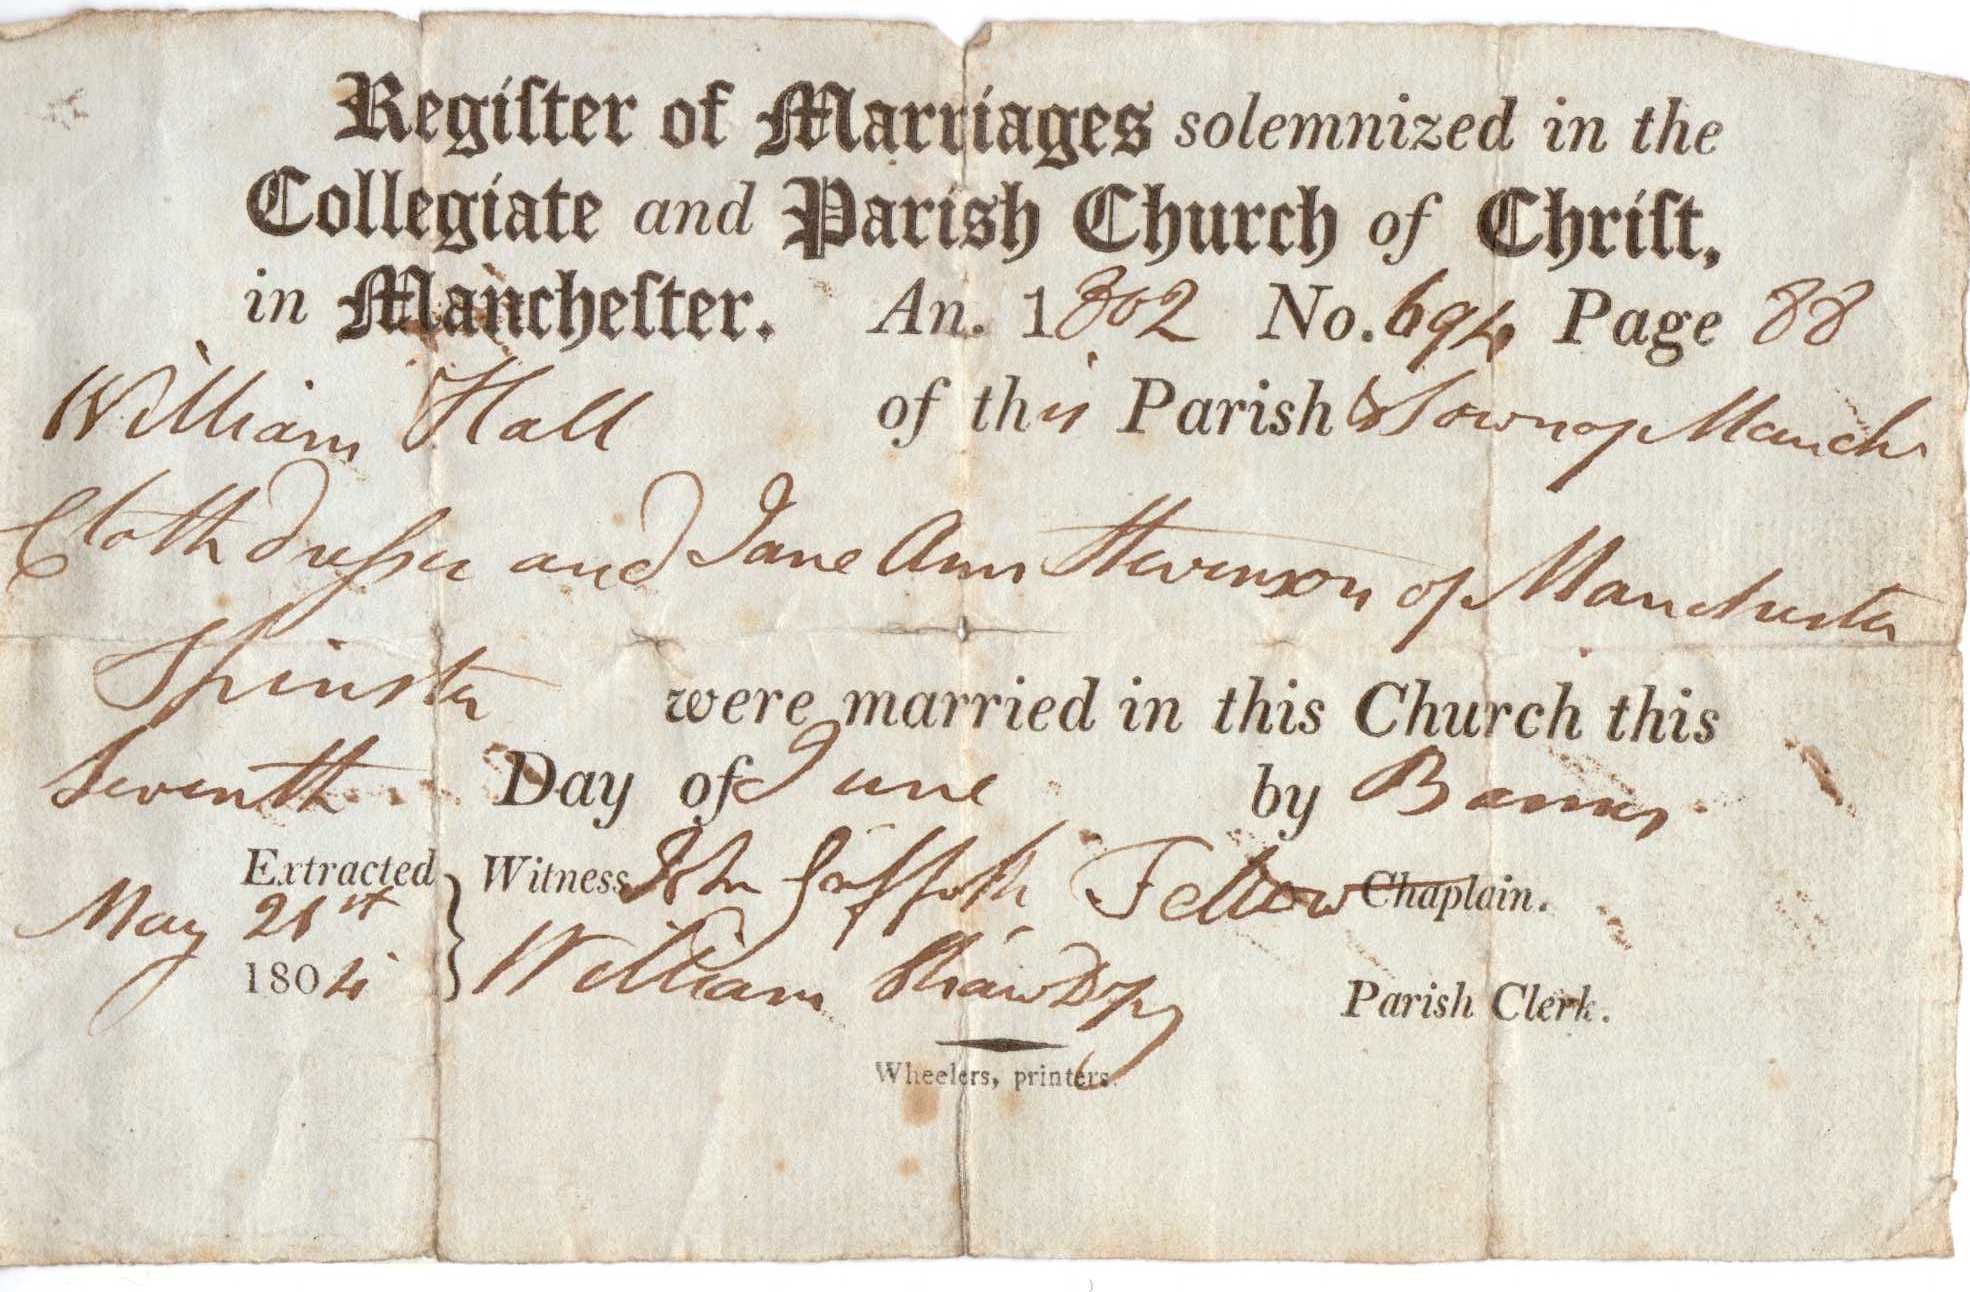 Regiſter of Marriages solemnized in the
Collegiate and Parish Church of Chriſt,
in Mancheſter. An. 1802 No. 694 Page 88
William Hall of this Parish & Town of Manchr
Cloth dresser and Jane Ann Stevenson of Manchester
Spinster were married in this Church this
Seventh Day of June by Banns
Extracted Witness John Gatfforth Fellow Chaplain.
May 21st
1804 William Shaw Dpy Parish Clerk.
Wheelers, printers.